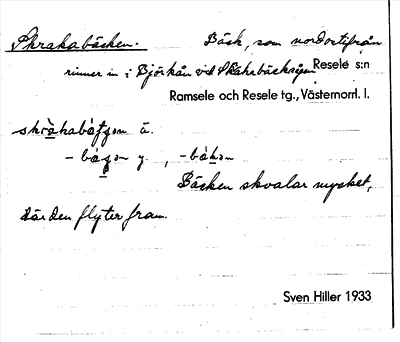 Skrakabäcken. Bäck, som nordostifrån
rinner in i Björkån vid Resele s:n
Ramsele och Resele tg., Västernorrl. l.
å.
y. ,
Bäcken skvalar mycket,
där den flyter fram.
Sven Hiller 1933